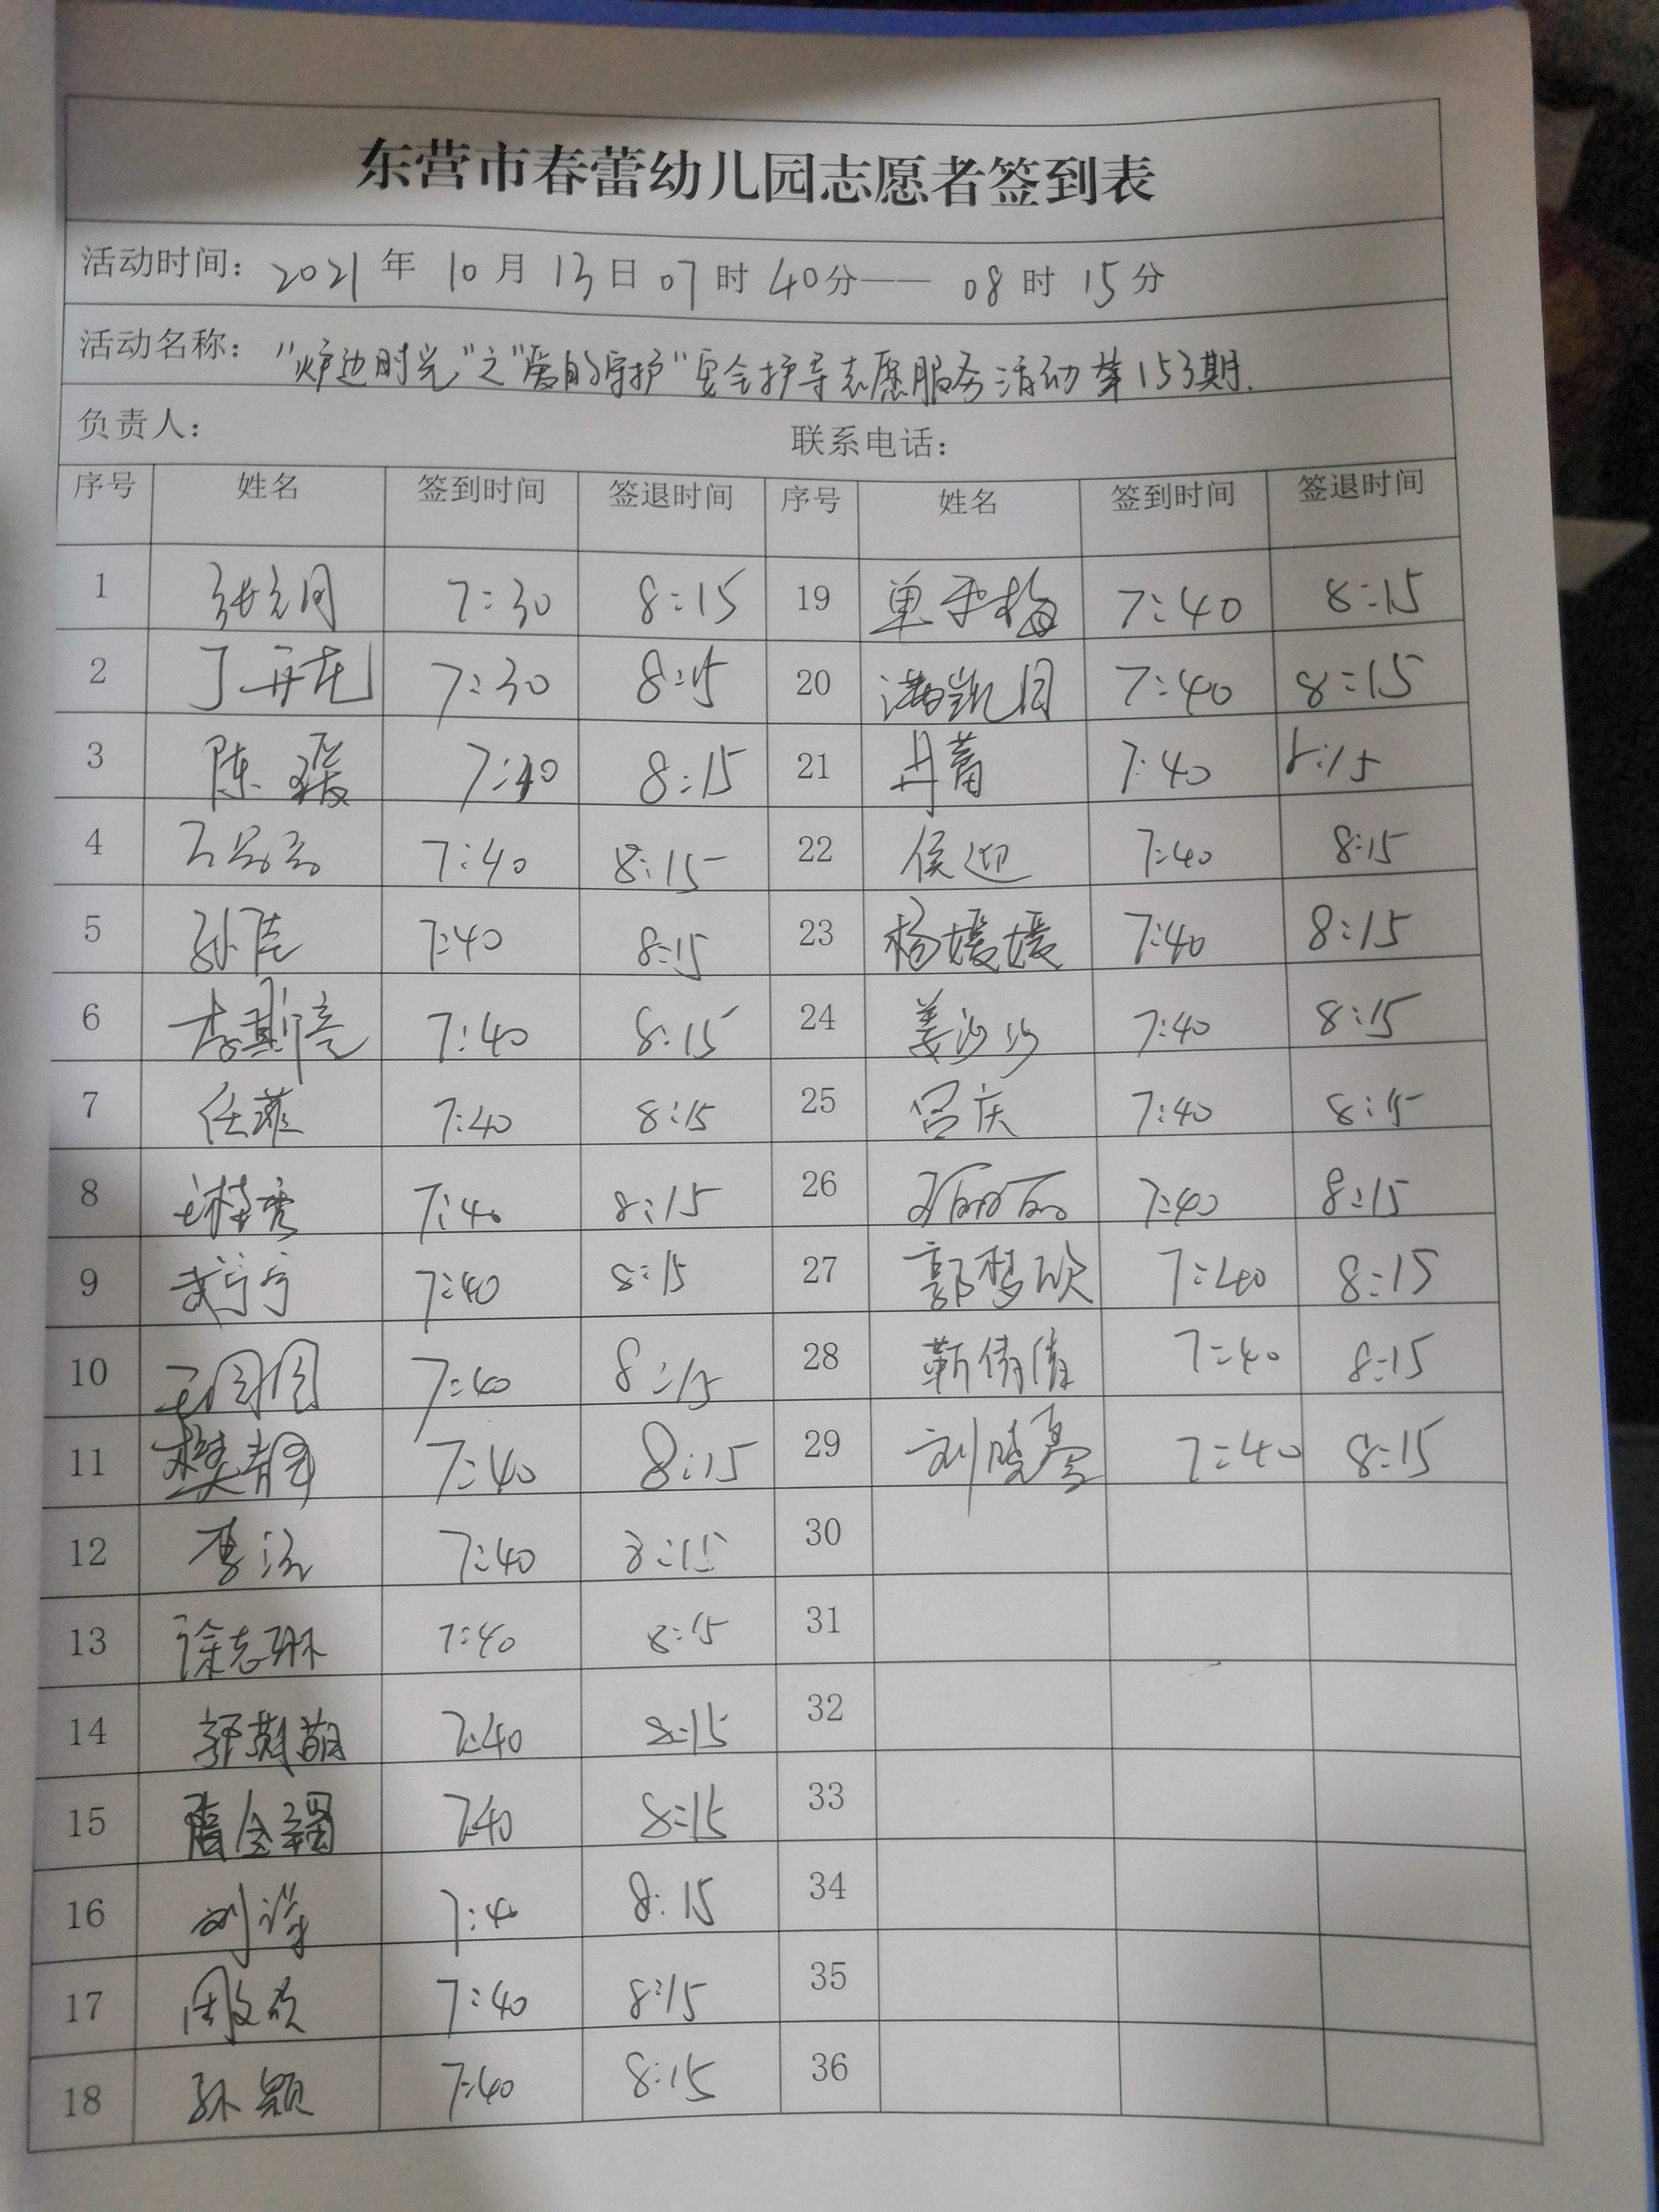 东营市春蕾幼儿园志愿者签到表
活动时间: 2021 年 10 月 13 日 07 时 40 分—— 08 时 15 分
活动名称: "炉边时光"之"爱的守护"安全护导志愿服务活动第153期.
负责人: 联系电话:
序号 姓名 签到时间 签退时间 序号 姓名 签到时间 签退时间
1 7:30 8:15 19 7:40 8:15
2 7:30 8:15 20 7:40 8:15
3 陈 瑷 8:15 21 丹蕾 7:40 8:15
4 7:40 8:15 22 侯迎 7:40 8:15
5 7:40 8:15 23 杨媛媛 7:40 8:15
6 李斯亮 7:40 8:15 24 姜沙沙 7:40 8:15
7 任菲 7:40 8:15 25 吕庆 7:40 8:15
8 7:40 8:15 26 7:40 8:15
9 武宁宁 7:40 8:15 27 郭梦欣 7:40 8:15
10 7:40 8:15 28 靳倩倩 7:40 8:15
11 樊静 7:40 8:15 29 刘晓蔓 7:40 8:15
12 7:40 8:15 30
13 徐志琳 7:40 8:15 31
14 7:40 8:15 32
15 7:40 8:15 33
16 7:40 8:15 34
17 7:40 8:15 35
18 孙颖 7:40 8:15 36